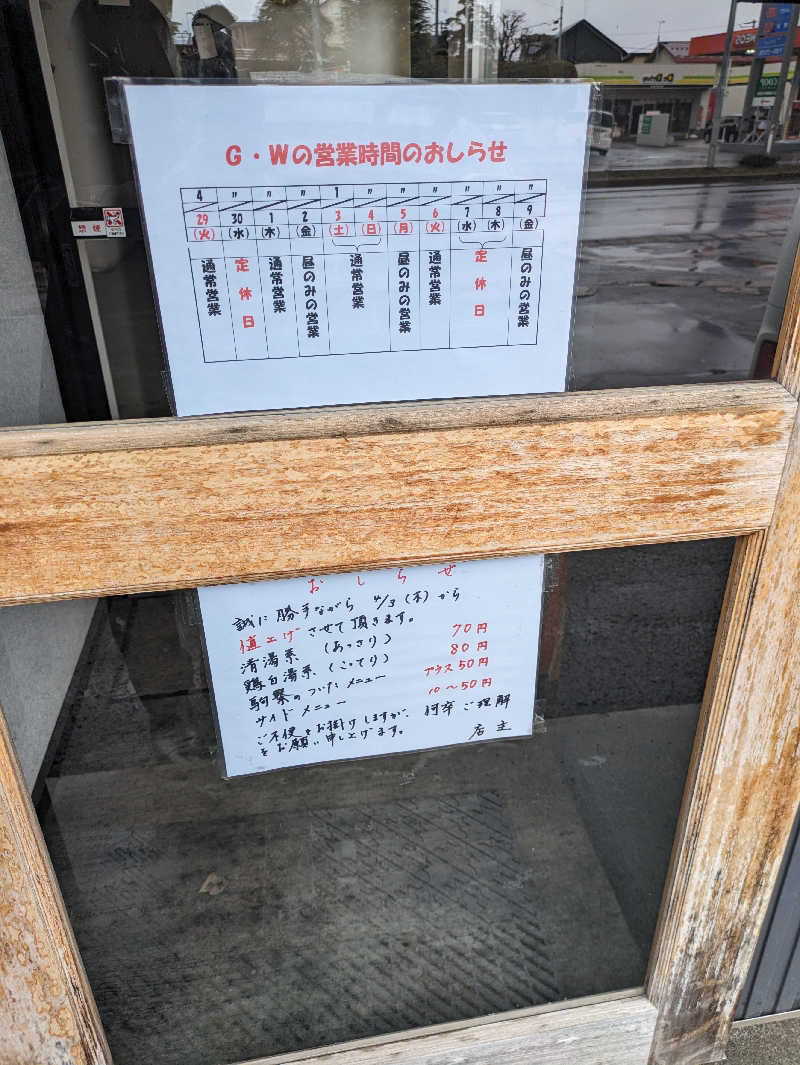 G・Wの営業時間のおしらせ
4 〃 〃 〃 1 〃 〃 〃 〃 〃 〃
29 30 1 2 3 4 5 6 7 8 9
(火) (水) (木) (金) (土) (日) (月) (火) (水) (木) (金)
通常営業
定休日
通常営業
昼のみの営業
通常営業
昼のみの営業
通常営業
定休日
昼のみの営業
禁煙
おしらせ
誠に勝手ながら 4/3(木)から
値上げさせて頂きます。
清湯系 (あっさり) 70円
鶏白湯系 (こってり) 80円
駒繋のついたメニュー プラス50円
サイドメニュー 10〜50円
ご不便をお掛けしますが、何卒ご理解
をお願い申し上げます。
店主